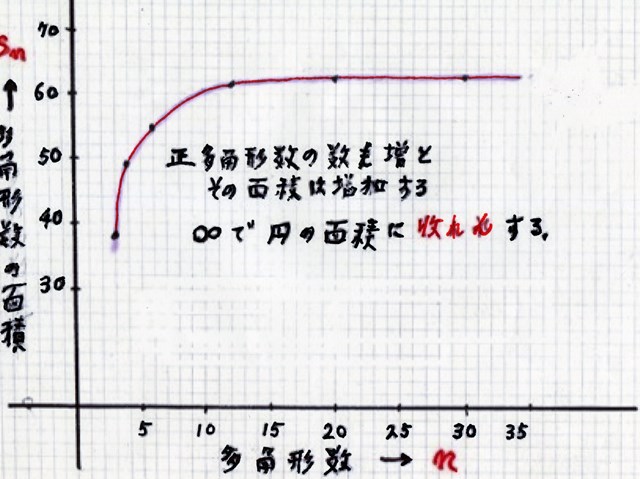 70
Sn
60
50
40
30
↑
多角形数の面積
正多角形数の数を増と
その面積は増加する
∞で円の面積に収れんする。
5 10 15 20 25 30 35
多角形数 → n